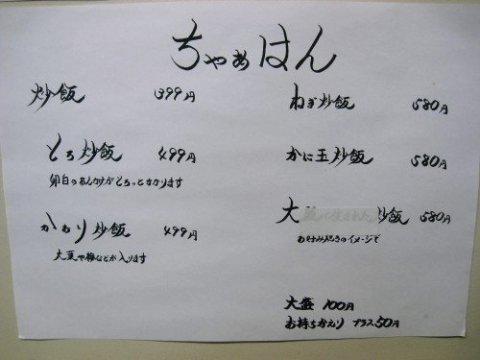 ちゃあはん
炒飯 399円
とろ炒飯 499円
卵白のあんかけがとろっとかかります
かわり炒飯 499円
大豆や梅などが入ります
ねぎ炒飯 580円
かに玉炒飯 580円
大 炒飯 580円
お好み焼きのイメージで
大盛 100円
お持ちかえり プラス50円